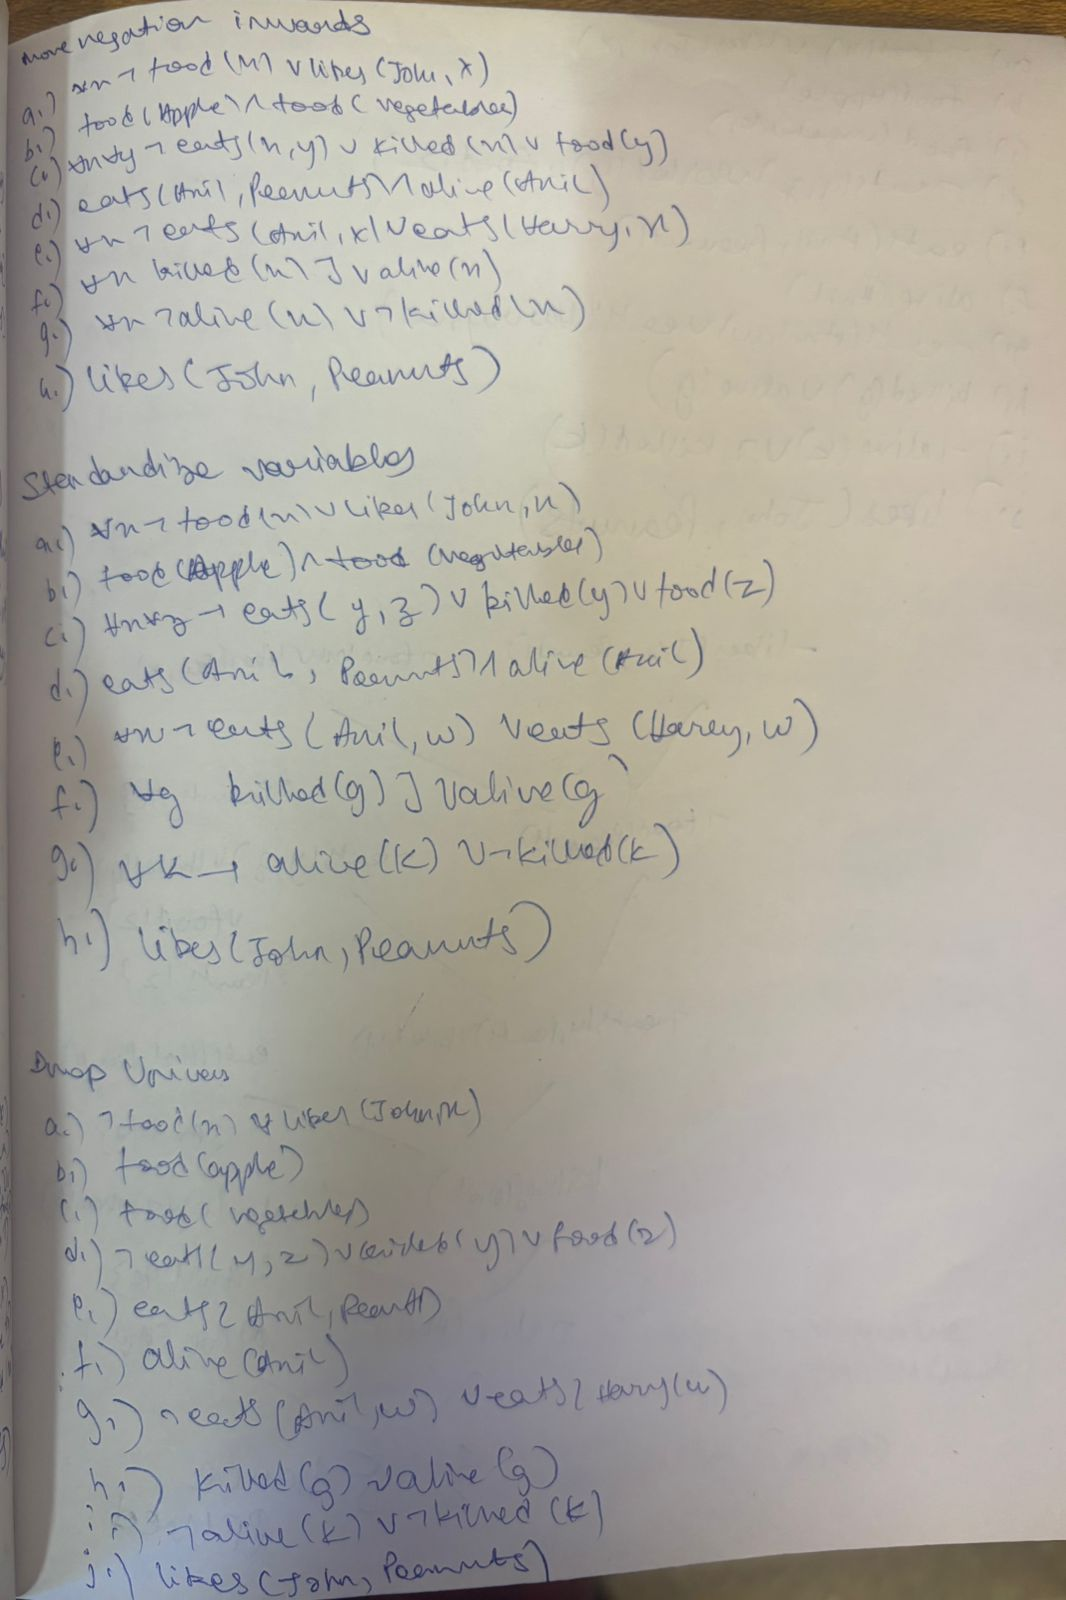 move negation inwards
a.) ∀x ¬ food(x) ∨ likes (John, x)
b.) food (Apple) ∧ food (vegetables)
c.) ∀x∀y ¬ eats(x,y) ∨ killed(x) ∨ food(y)
d.) eats(Anil, Peanuts) ∧ alive (Anil)
e.) ∀x ¬ eats (Anil, x) ∨ eats (Harry, x)
f.) ∀x killed (x) ] ∨ alive(x)
g.) ∀x ¬alive (x) ∨ ¬killed (x)
h.) likes (John, Peanuts)
Standardize variables
a.) ∀x ¬ food(x) ∨ likes (John, x)
b.) food (Apple) ∧ food (vegetables)
c.) ∀x∀z ¬ eats( y, z) ∨ killed(y) ∨ food(z)
d.) eats (Anil, Peanuts) ∧ alive (Anil)
e.) ∀w ¬ eats (Anil, w) ∨ eats (Harry, w)
f.) ∀g killed(g) ] ∨ alive(g
g.) ∀k ¬ alive (k) ∨ ¬killed(k)
h.) likes (John, Peanuts)
Drop Univers
a.) ¬food(x) ∨ likes (John, x)
b.) food (apple)
c.) food ( vegetables)
d.) ¬ eats( y, z) ∨ killed( y) ∨ food (z)
e.) eats (Anil, Peanuts)
f.) alive (Anil)
g.) ¬eats (Anil, w) ∨ eats (Harry(w)
h.) killed (g) ∨ alive (g)
i.) ¬alive (k) ∨ ¬killed (k)
j.) likes (John, Peanuts)